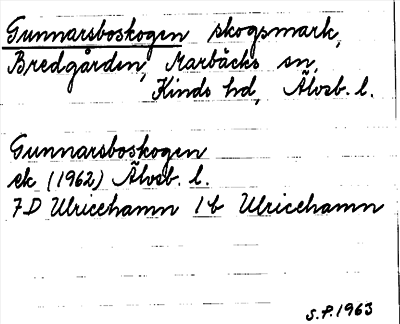 Gunnarsboskogen skogsmark,
Bredgården, Marbäcks sn,
Kinds hd, Älvsb. l.
Gunnarsboskogen
ek (1962) Älvsb. l.
7D Ulricehamn 1b Ulricehamn
S.P. 1963